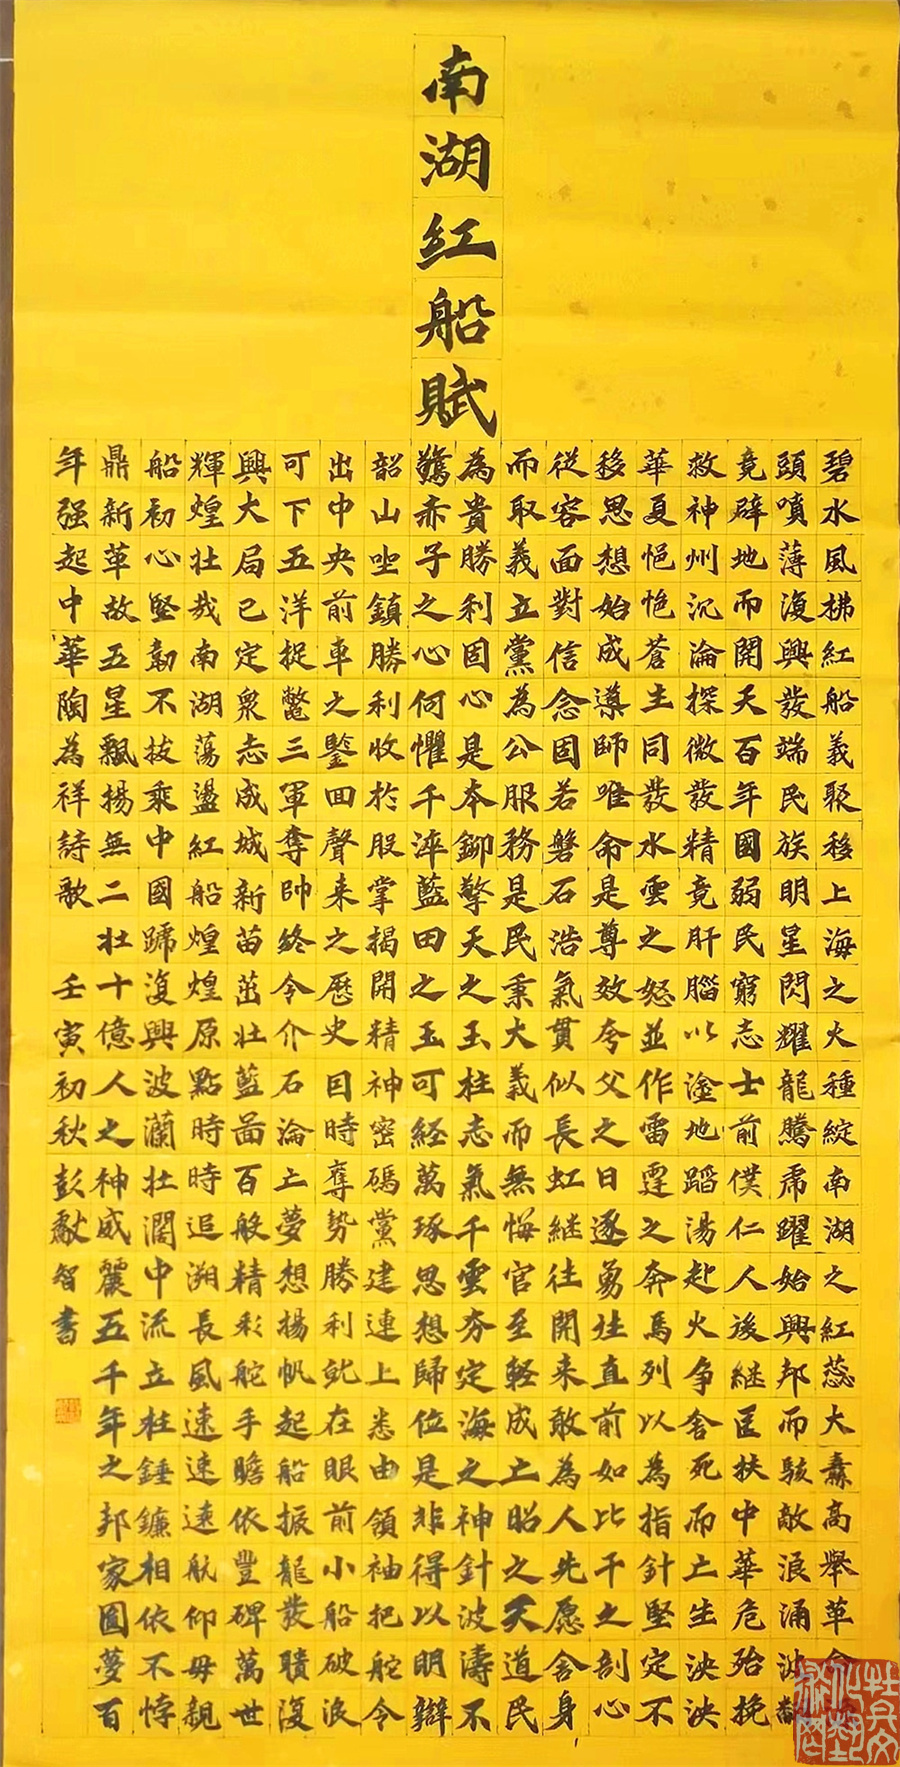 南湖紅船賦
碧水風拂紅船義聚移上海之火種綻南湖之紅蕊大纛高舉革命
頭噴薄復興發端民族明星閃耀龍騰虎躍始興邦而駭敵浪涌波翻
竟辟地而開天百年國弱民窮志士前僕仁人後継匡扶中華危殆挽
救神州沉淪探微發精竟肝腦以塗地蹈湯赴火争舍死而亡生泱泱
華夏悒悒蒼生同發水雲之怒並作雷霆之奔馬列以為指針堅定不
移思想始成導師唯命是尊效夸父之日逐勇往直前如比干之剖心
従容面對信念固若磐石浩氣貫似長虹継往開来敢為人先愿舍身
而取義立黨為公服務是民秉大義而無悔官至軽成土昭之天道民
為貴勝利固心是本鉚擎天之玉柱志氣千雲夯定海之神針波濤不
驚赤子之心何懼千淬藍田之玉可経萬琢思想歸位是非得以明辯
韶山坐鎮勝利收於股掌揭開精神密碼黨建連上悉由領袖把舵令
出中央前車之鑒回聲来之歷史日時奪勢勝利就在眼前小船破浪
可下五洋捉鱉三軍奪帥終令介石淪亡夢想揚帆起船振龍發聵復
興大局已定衆志成城新苗茁壯藍圖百般精彩舵手瞻依豐碑萬世
輝煌壯哉南湖蕩盪紅船煌煌原點時時追溯長風速速遠航仰毋親
船初心堅韌不拔乘中國蹄復興波瀾壯濶中流立柱錘鐮相依不悖
鼎新革故五星飄揚無二壯十億人之神威麗五千年之邦家圓夢百
年强起中華陶為祥詩歌 壬寅初秋彭獻智書